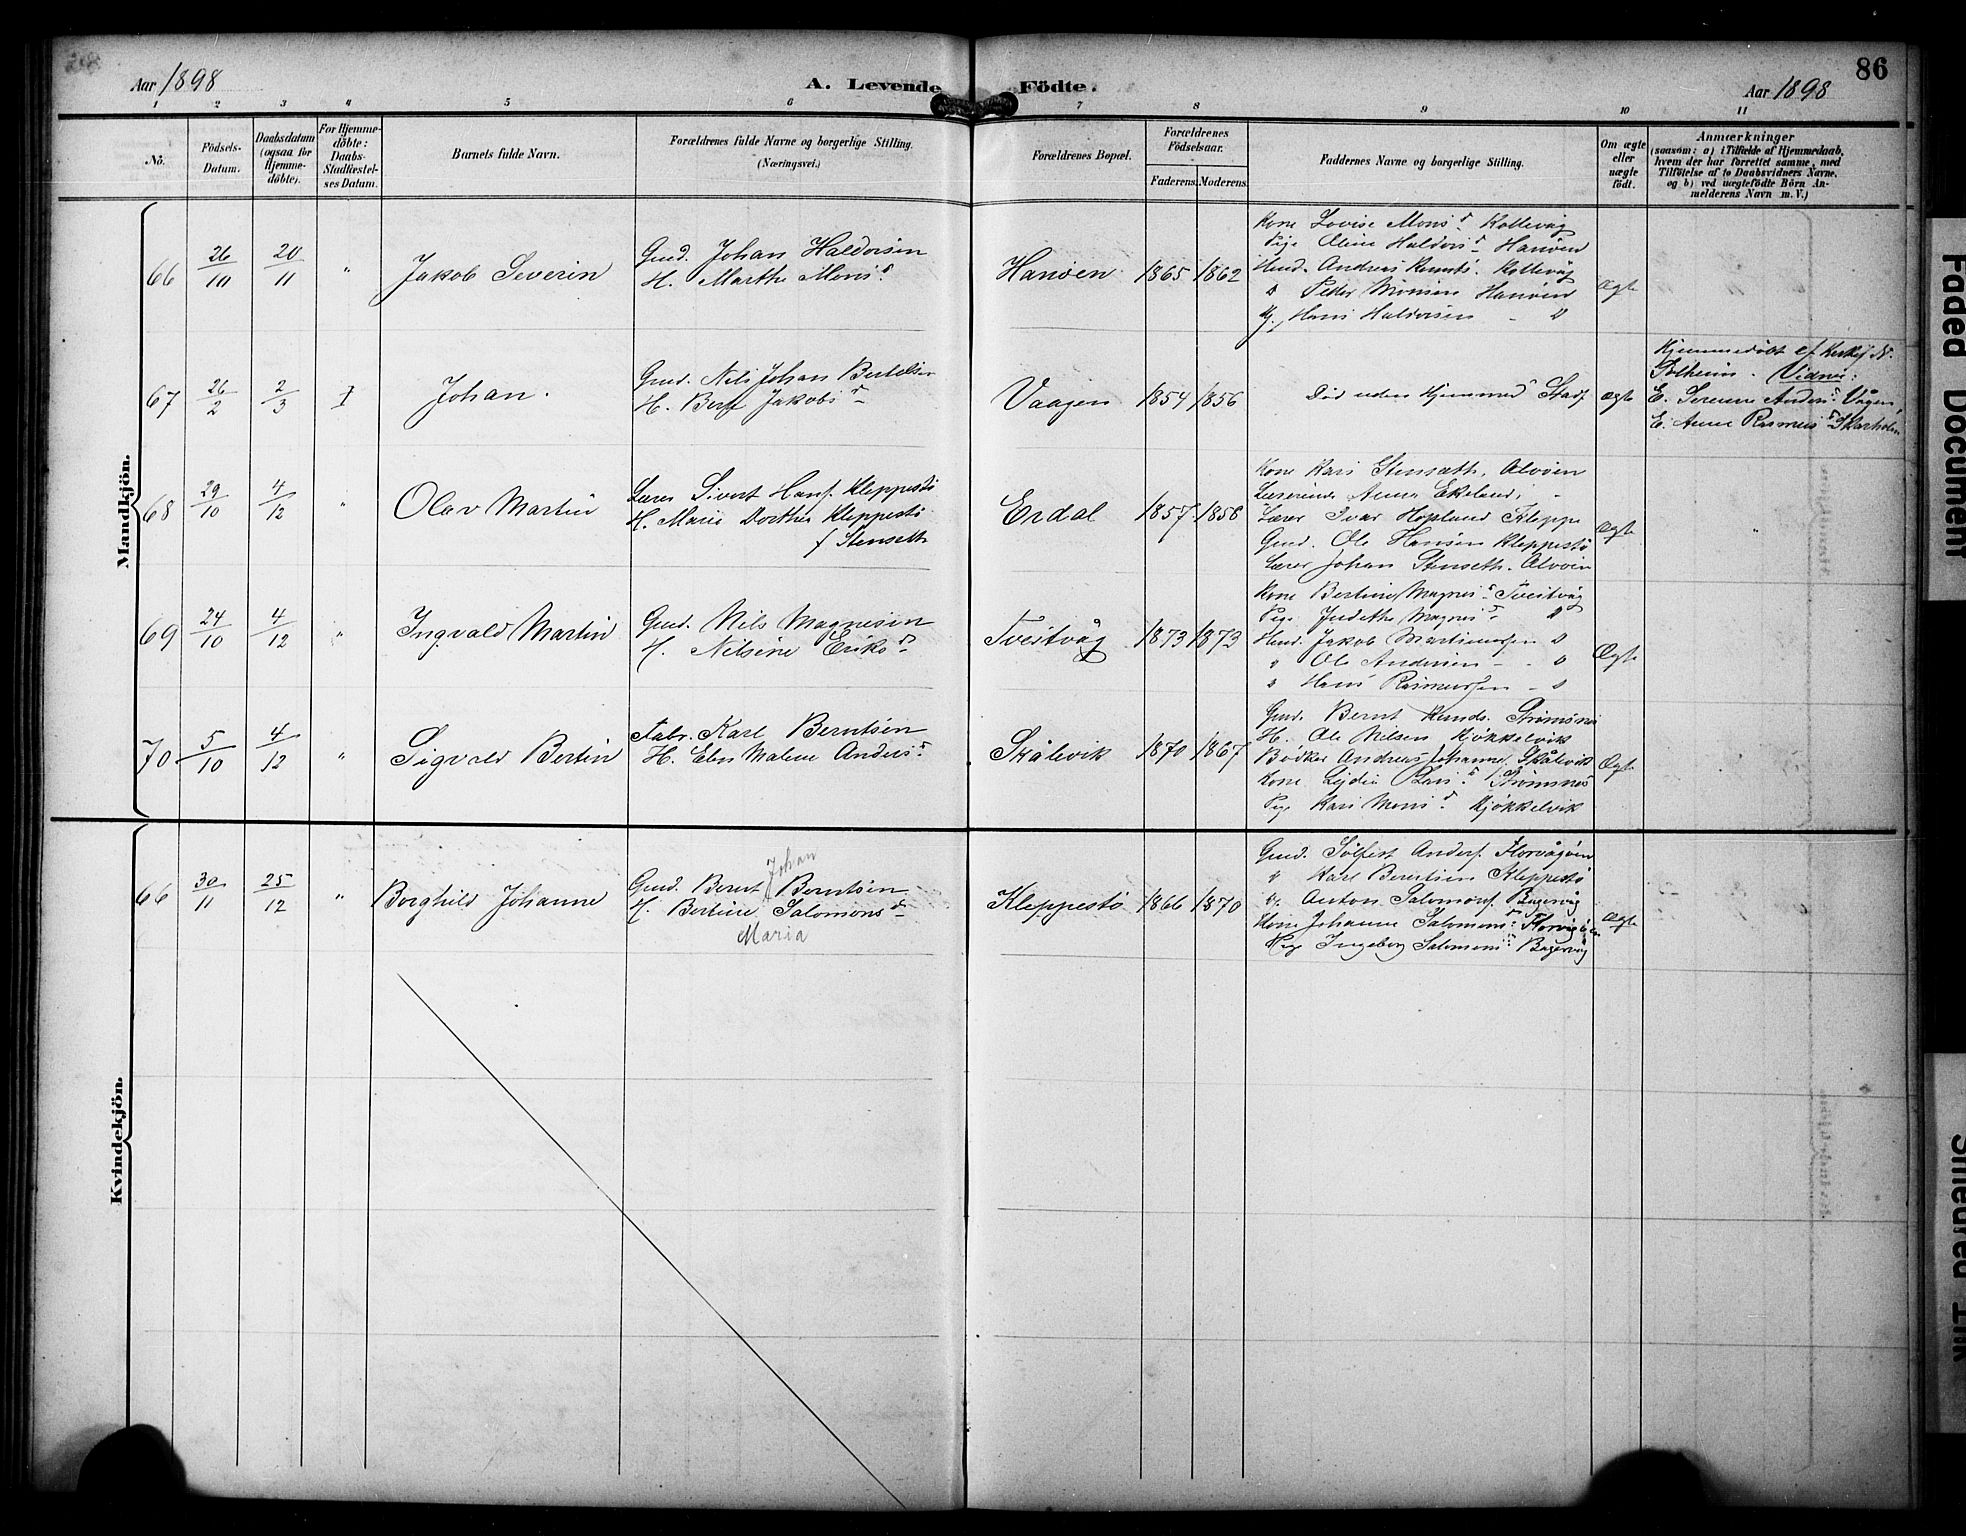 86
Aar 1898
A. Levende Födte.
Aar 1898
1 2 3 4 5 6 7 8 9 10 11
No.
Födsels-Datum.
Daabsdatum (ogsaa for Hjemme-döbte).
For Hjemme-döbte: Daabs-Stadfæstel-ses Datum.
Barnets fulde Navn.
Forældrenes fulde Navne og borgerlige Stilling. (Næringsvei.)
Forældrenes Bopæl.
Forældrenes Födselsaar.
Faderens. Moderens.
Faddernes Navne og borgerlige Stilling.
Om ægte eller uægte födt.
Anmærkninger
(saasom: a) i Tilfælde af Hjemmedaab, hvem der har forrettet samme, med Tilföielse af to Daabsvidners Navne, og b) ved uægtefödte Börn An-melderens Navn m. V.)
Mandkjön.
66 26/10 20/11 " Jakob Severin
Gmd. Johan Haldorsen
H. Marthe Monsd.
Hanøen 1865 1862
Kone Lovise Monsd. Kollevåg
Pige Oline Haldorsd. Hanøen
Ungk. Andreas Knuts. Kollevåg
" Peder Monsen Hanøen
Hans Haldorsen - "
Ægte
67 26/2 2/3 Johan.
Gmd. Nils Johan Bertelsen
H. Berte Jakobsd.
Vaagen 1854 1856
Død uden Hjemmed. Stadf.
Ægte
Hjemmedøbt af Kirkes. N. Solheim. Vidner:
E. Serene Andersd. Vågen,
E. Anne Rasmusd. Skarholm
68 29/10 4/12 " Olav Martin
Lærer Sivert Hans. Kleppestø
H. Marie Dorthea Kleppestø
f. Stenseth
Erdal 1857 1858
Kone Kari Stenseth, Alvøen
Lærerinde Anna Ekeland, "
Lærer Ivar Hopland Kleppe
Gmd. Ole Hansen Kleppestø
Lærer Johan Stenseth. Alvøen
Ægte "
69 24/10 4/12 " Ingvald Martin
Gmd. Nils Magnesen
H. Nilsine Eriksd.
Tveitvåg 1873 1873
Kone Bertine Magnesd. Tveitvåg
Pige Judithe Magnesd. "
Ungk. Jakob Martinussen "
" Ole Andersen - - "
" Hans Rasmussen - "
Ægte
70 5/10 4/12 " Sigvald Bertin
Fabr. Karl Berntsen
H. Elen Malene Andersd.
Skålevik 1870 1867
Gmd. Bernt Knuds. Strømsnes
H. Ole Nilsen Kjøkkelvik
Bødker Andreas Johannes. Skålevik
Kone Lydia Larsd. Strømsnes
Pige Kari Monsd. Kjøkkelvik
Ægte
Kvindekjön.
66 30/11 25/12 " Borghild Johanne
Johan
Gmd. Bernt Berntsen
H. Bertine Salomonsd.
Maria
Kleppestø 1866 1870
Gmd. Sølfest Anders. Florvågøen
" Karl Berntsen Kleppestø
Anton Salomons. Bugervåg
Kone Johanne Salomonsd. Florvågøen
Pige Ingeborg Salomonsd. Bugervåg
Ægte
Faded Document
Smeared Ink